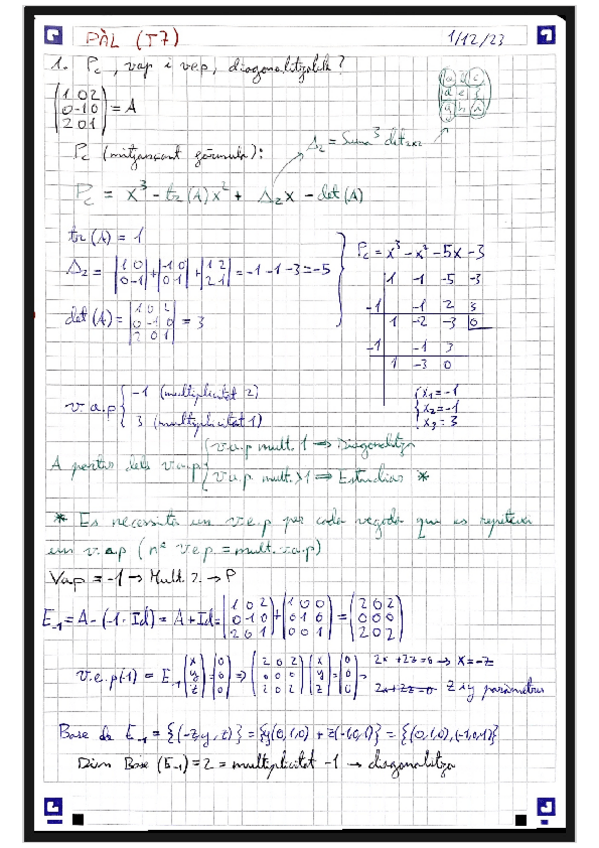 PÀL (T7) 1/12/23
1. Pc, vap i vep, diagonalitzable?
(1 0 2
0 -1 0
2 0 1) = A
a b c
d e f
g h i
Δ₂ = Suma 3 det 2x2
Pc (mitjançant fórmula):
Pc = x³ - tr(A)x² + Δ₂x - det(A)
tr(A) = 1
Δ₂ = |1 0
0 -1| + |-1 0
0 1| + |1 2
2 1| = -1 -1 -3 = -5
det(A) = |1 0 2
0 -1 0
2 0 1| = 3
Pc = x³ - x² - 5x - 3
1 -1 -5 -3
-1 -1 2 3
1 -2 -3 0
-1 -1 3
1 -3 0
x₁ = -1
x₂ = -1
x₃ = 3
v.a.p { -1 (multiplicitat 2)
3 (multiplicitat 1)
A partir dels v.a.p { v.a.p mult. 1 ⇒ Diagonalitza
v.a.p mult. >1 ⇒ Estudiar *
* Es necessita un v.e.p per cada vegada que es repeteixi
un v.a.p (nº vep = mult. v.a.p)
Vap = -1 → Mult. 2 → P
E₋₁ = A - (-1·Id) = A + Id = (1 0 2
0 -1 0
2 0 1) + (1 0 0
0 1 0
0 0 1) = (2 0 2
0 0 0
2 0 2)
v.e.p(-1) = E₋₁ (x
y
z) = (0
0
0) ⇒ (2 0 2
0 0 0
2 0 2) (x
y
z) = (0
0
0) → 2x + 2z = 0 → x = -z
2x + 2z = 0 z i y paràmetres
Base de E₋₁ = {(-z, y, z)} = {y(0,1,0) + z(-1,0,1)} = {(0,1,0), (-1,0,1)}
Dim Base (E₋₁) = 2 = multiplicitat -1 → diagonalitza